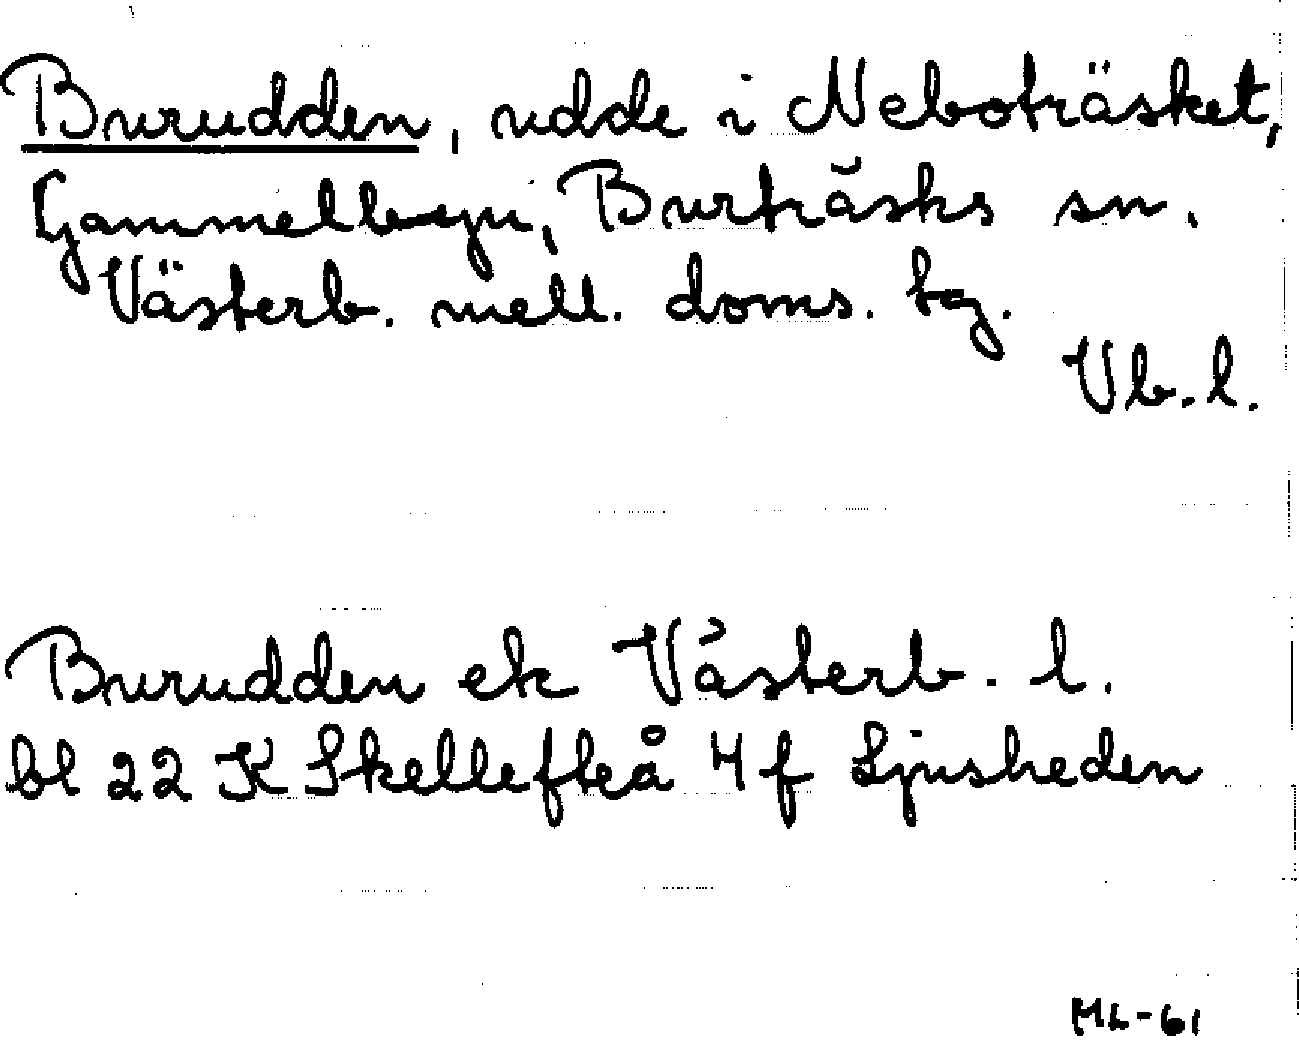 Burudden, udde i Neboträsket,
Gammelbyn, Burträsks sn.
Västerb. mell. doms. tg.
Vb. l.
Burudden ek Västerb. l.
bl 22 K Skellefteå 4 f Ljusheden
ML-61